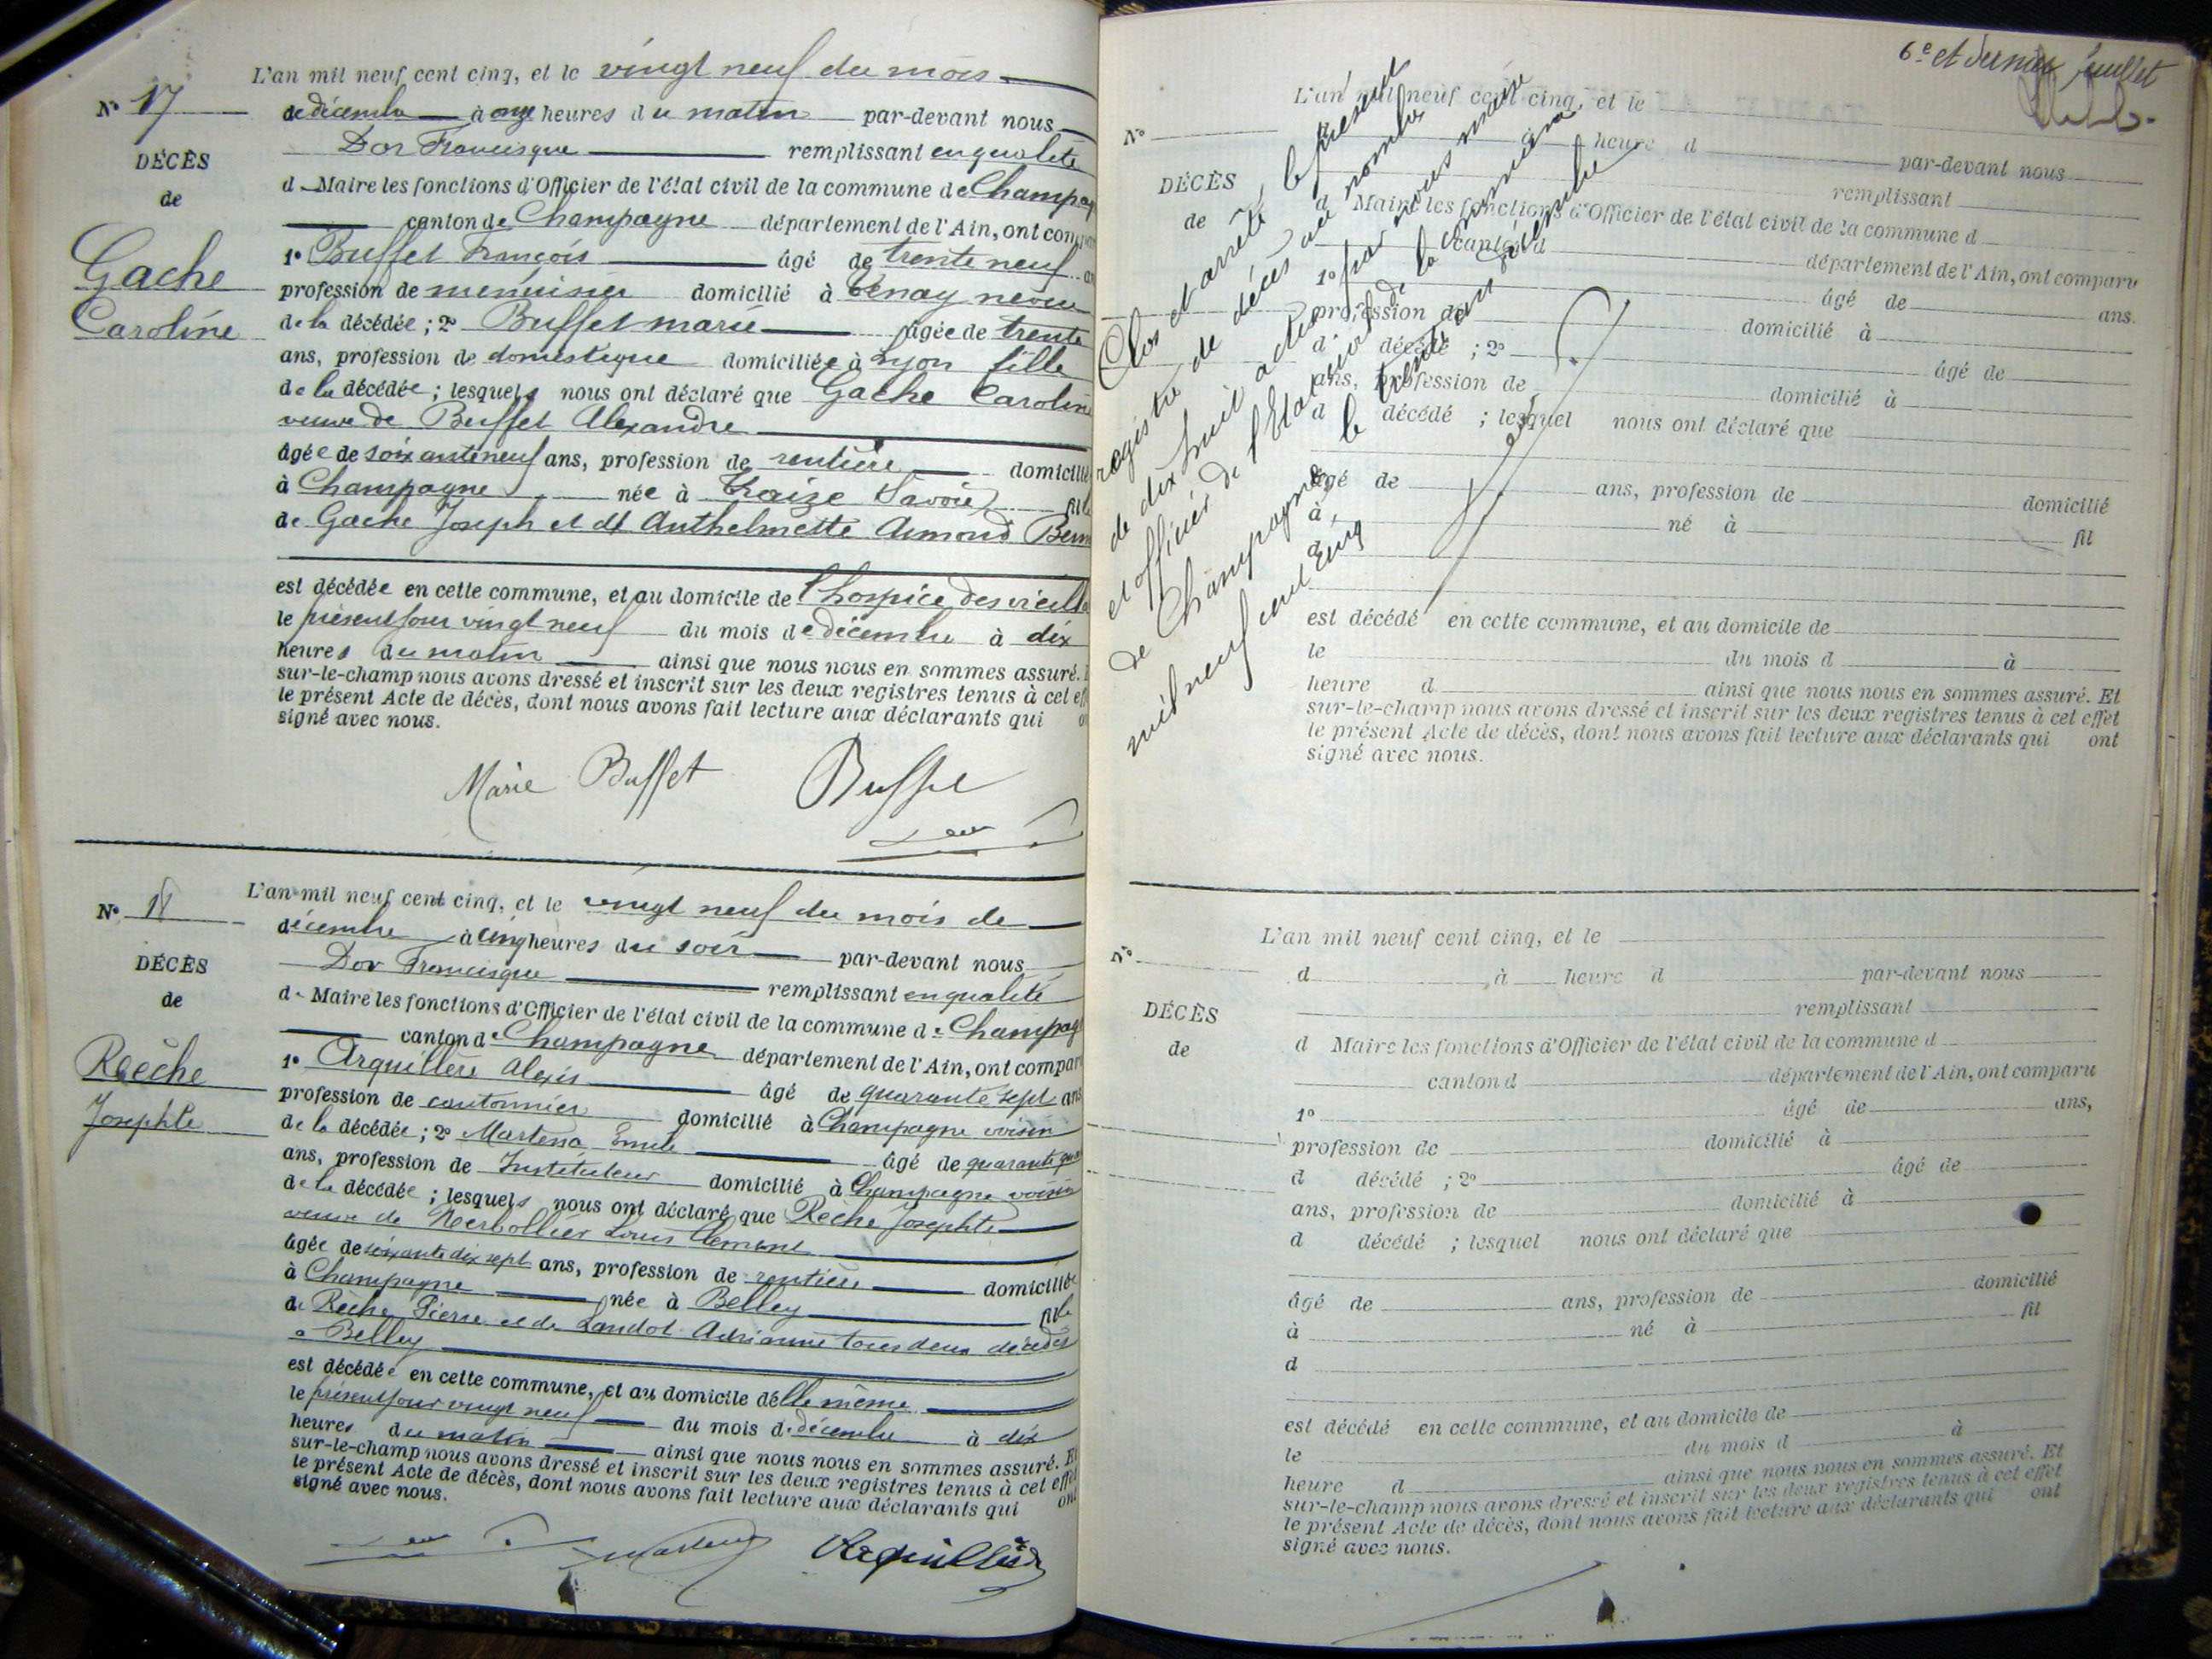 L'an mil neuf cent cinq, et le vingt neuf du mois
N° 17
de décembre à onze heures du matin par-devant nous
DÉCÈS
Dor Francisque remplissant en qualité
de
d Maire les fonctions d'Officier de l'état civil de la commune de Champag
canton de Champagne département de l'Ain, ont comp
Gache
1° Buffet François âgé de trente neuf an
profession de menuisier domicilié à Tenay neveu
Caroline
de la décédée ; 2° Buffet marie âgée de trente
ans, profession de domestique domiciliée à Lyon fille
de la décédée ; lesquels nous ont déclaré que Gache Caroline
veuve de Buffet Alexandre
âgée de soixante neuf ans, profession de rentière domicilié
à Champagne née à Traize (Savoie) fille
de Gache Joseph et de Anthelmette
est décédée en cette commune, et au domicile de l'hospice des vieilla
le présent jour vingt neuf du mois de décembre à dix
heures du matin ainsi que nous nous en sommes assuré.
sur-le-champ nous avons dressé et inscrit sur les deux registres tenus à cet eff
le présent Acte de décès, dont nous avons fait lecture aux déclarants qui o
signé avec nous.
Marie Buffet Buffet
L'an mil neuf cent cinq, et le vingt neuf du mois de
N° 18
décembre à cinq heures du soir par-devant nous
DÉCÈS
Dor Francisque remplissant en qualité
de
de Maire les fonctions d'Officier de l'état civil de la commune de Champag
canton de Champagne département de l'Ain, ont compar
Rèche
1° Arquillère Alexis âgé de quarante sept ans
profession de cantonnier domicilié à Champagne voisin
Josephte
de la décédée ; 2° Martena Emile âgé de quarante qua
ans, profession de Instituteur domicilié à Champagne voisin
de la décédée ; lesquels nous ont déclaré que Rèche Josephte
veuve de Louis Clément
âgée de soixante dix sept ans, profession de rentière domiciliée
à Champagne née à Belley fille
de Rèche Pierre et de Landot Adrianne tous deux décédés
à Belley
est décédée en cette commune, et au domicile d'elle même
le présent jour vingt neuf du mois de décembre à dix
heures du matin ainsi que nous nous en sommes assuré. Et
sur-le-champ nous avons dressé et inscrit sur les deux registres tenus à cet effet
le présent Acte de décès, dont nous avons fait lecture aux déclarants qui ont
signé avec nous.
Martena Arquillère
6e et dernier feuillet
Clos et arrêté le présent
registre de décès au nombre
de dix huit actes par nous maire
et officier de l'Etat civil de la commune
de Champagne, le trente un décembre
mil neuf cent cinq
L'an mil neuf cent cinq, et le
N°
à heure d par-devant nous
DÉCÈS
remplissant
de
d Maire les fonctions d'Officier de l'état civil de la commune d
canton d département de l'Ain, ont comparu
1° âgé de ans.
profession de domicilié à
d décédé ; 2° âgé de
ans, profession de domicilié à
d décédé ; lesquel nous ont déclaré que
âgé de ans, profession de domicilié
à né à fil
d
est décédé en cette commune, et au domicile de
le du mois d à
heure d ainsi que nous nous en sommes assuré. Et
sur-le-champ nous avons dressé et inscrit sur les deux registres tenus à cet effet
le présent Acte de décès, dont nous avons fait lecture aux déclarants qui ont
signé avec nous.
L'an mil neuf cent cinq, et le
N°
d à heure d par-devant nous
DÉCÈS
remplissant
de
d Maire les fonctions d'Officier de l'état civil de la commune d
canton d département de l'Ain, ont comparu
1° âgé de ans,
profession de domicilié à
d décédé ; 2° âgé de
ans, profession de domicilié à
d décédé ; lesquel nous ont déclaré que
âgé de ans, profession de domicilié
à né à fil
d
est décédé en cette commune, et au domicile de
le du mois d à
heure d ainsi que nous nous en sommes assuré. Et
sur-le-champ nous avons dressé et inscrit sur les deux registres tenus à cet effet
le présent Acte de décès, dont nous avons fait lecture aux déclarants qui ont
signé avec nous.